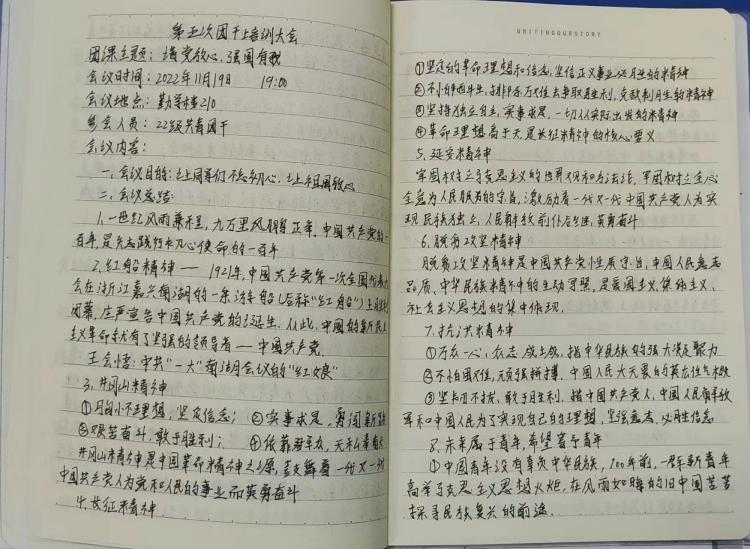 第五次团干上培训大会
团课主题：请党放心，强国有我
会议时间：2022年11月19日 19:00
会议地点：勤学楼210
参会人员：22级共青团干
会议内容：
一、会议目的：让同学们不忘初心，让祖国放心
二、会议总结：
1.一世纪风雨兼程，九万里风鹏正举，中国共产党的一
百年，是矢志践行初心使命的一百年
2.红船精神——1921年，中国共产党第一次全国代表大
会在浙江嘉兴南湖的一条游船(后称"红船")上胜利
闭幕，庄严宣告中国共产党的诞生，从此，中国的新民主
主义革命就有了坚强的领导者——中国共产党。
王会悟：中共"一大"南湖会议的"红娘"
3.井冈山精神
①胸怀理想，坚定信念；②实事求是，勇闯新路
③艰苦奋斗，敢于胜利；④依靠群众，无私奉献
井冈山精神是中国革命精神之源，鼓舞着一代又一代
中国共产党人为党和人民的事业而英勇奋斗
4.长征精神
WRITINGOURSTORY
①坚定的革命理想和信念，坚信正义事业必胜的精神
②不怕牺牲，排除万难去争取胜利，克敌制胜的精神
③坚持独立自主，实事求是，一切从实际出发的精神
④革命理想高于天是长征精神的核心要义
5.延安精神
牢固树立马克思主义的世界观和方法论，牢固树立全心
全意为人民服务的宗旨，激励着一代又一代中国共产党人为实
现民族独立，人民解放前仆后继，英勇奋斗
6.脱贫攻坚精神
脱贫攻坚精神是中国共产党性质宗旨，中国人民意志
品质，中华民族精神的生动写照，是爱国主义，集体主义，
社会主义思想的集中体现。
7.抗洪精神
①万众一心，众志成城，指中华民族的强大凝聚力
②不怕困难，顽强拼搏，中国人民大无畏的英雄气概
③坚韧不拔，敢于胜利，指中国共产党人，中国人民解放
军和中国人民为了实现自己的理想，坚强意志，必胜信念
8.未来属于青年，希望寄予青年
①中国青年没有辜负中华民族，100年前，一群新青年
高举马克思主义思想火炬，在风雨如晦的旧中国苦苦
探寻民族复兴的前途。